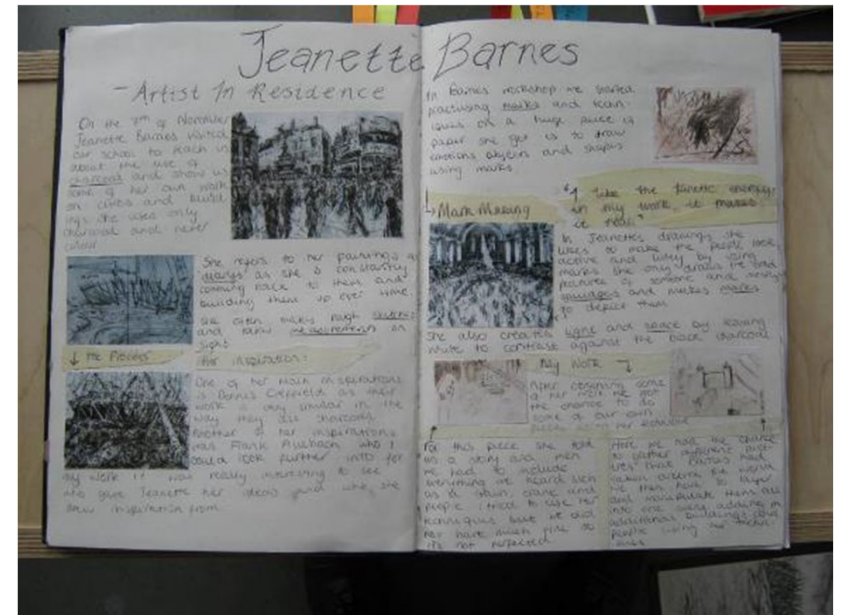 Jeanette Barnes
- Artist In Residence
On the 7th of November
Jeanette Barnes visited
our school to teach us
about the use of
charcoal and show us
some of her own work
on cities and build
ings she uses only
charcoal and never
colour.
She refers to her paintings as
as she is constantly
coming back to them and
building them up over time.
She often makes rough sketches
and takes measurements on
sight
↓ The Process
Her inspiration:
One of her main inspirations
is Dennis Creffield as their
work is very similar in the
way they use charcoal
Another of her inspirations
was Frank Auerbach who I
could look further into for
my work it was really interesting to see
who gave Jeanette her ideas and who she
drew inspiration from.
In Barnes workshop we started
practising marks and techn-
iques on a huge piece of
paper she got us to draw
emotions objects and shapes
using marks.
↳ Mark Making
"I like the kinetic energy
in my work, it makes
it real"
In Jeanettes drawings she
likes to make the people look
active and lively by using
marks she only draws
pictures of someone and mostly
smudges and makes marks
to depict them
She also creates light and space by leaving
white to contrast against the black charcoal
My Work
After observing some
of her work we got
the chance to do
some of our own
For this piece she told
us a story and then
we had to include
everything we heard such
as a train crane and
people I tried to use her
techniques but we did
not have much time so
it's not perfected
Here we had the chance
to gather different pict-
ures that Barnes had
taken around the world
we then had to layer
and manipulate them all
into one were adding in
additional buildings and
people using her techni-
ques